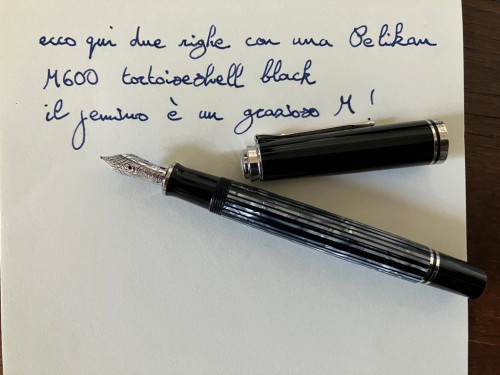 ecco qui due righe con una Pelikan
M600 tortoiseshell black
il pennino è un grazioso M!